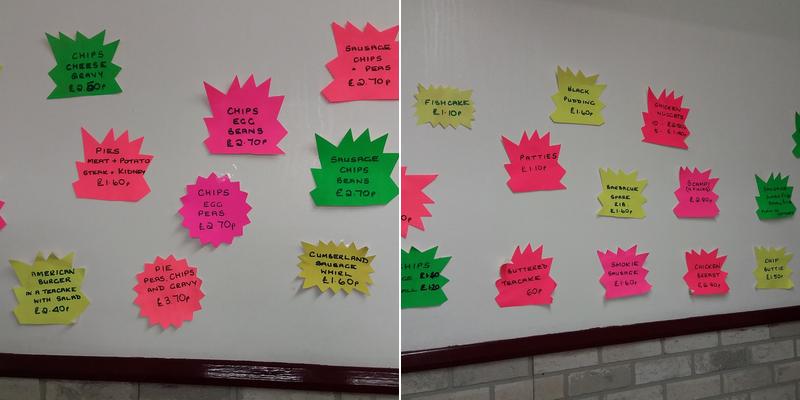 CHIPS
CHEESE
GRAVY
£2.50p
SAUSAGE
CHIPS
+ PEAS
£2.70p
CHIPS
EGG
BEANS
£2.70p
PIES
MEAT + POTATO
STEAK + KIDNEY
£1.60p
SAUSAGE
CHIPS
BEANS
£2.70p
CHIPS
EGG
PEAS
£2.70p
AMERICAN
BURGER
IN A TEACAKE
WITH SALAD
£2.40p
PIE
PEAS, CHIPS
AND GRAVY
£3.70p
CUMBERLAND
SAUSAGE
WHIRL
£1.60p
FISHCAKE
£1.10p
BLACK
PUDDING
£1.60p
CHICKEN
NUGGETS
PATTIES
£1.10p
BARBACUE
SPARE
RIB
£1.60p
SCAMPI
£2.90p
SAUSAGE
CHIPS
£1.20
BUTTERED
TEACAKE
60p
SMOKIE
SAUSAGE
£1.60p
CHICKEN
BREAST
£2.90p
CHIP
BUTTIE
£1.50p